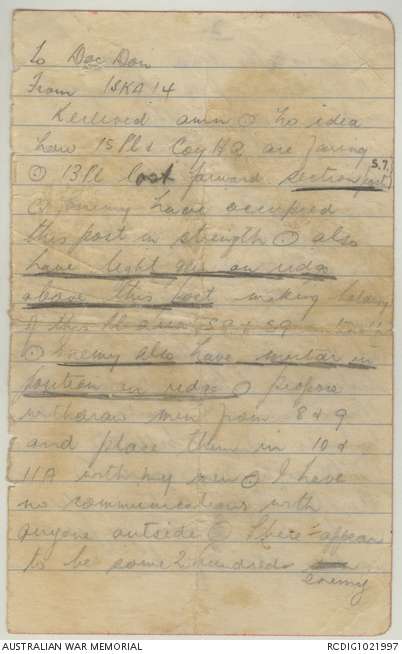 to Doc Don
From ISKA 14
Received amn ⊙ no idea
how 15 Pl & Coy HQ are faring
⊙ 13 Pl lost forward section post S.7.
⊙ Enemy have occupied
this post in strength ⊙ also
have light gun on ridge
above this post making holding
of this Pl area S8 & S9
⊙ Enemy also have mortar in
position on ridge ⊙ propose
withdraw men from 8 & 9
and place them in 10 &
11A with my men ⊙ I have
no communications with
anyone outside ⊙ There appears
to be some 2 hundreds
enemy
AUSTRALIAN WAR MEMORIAL
RCDIG1021997